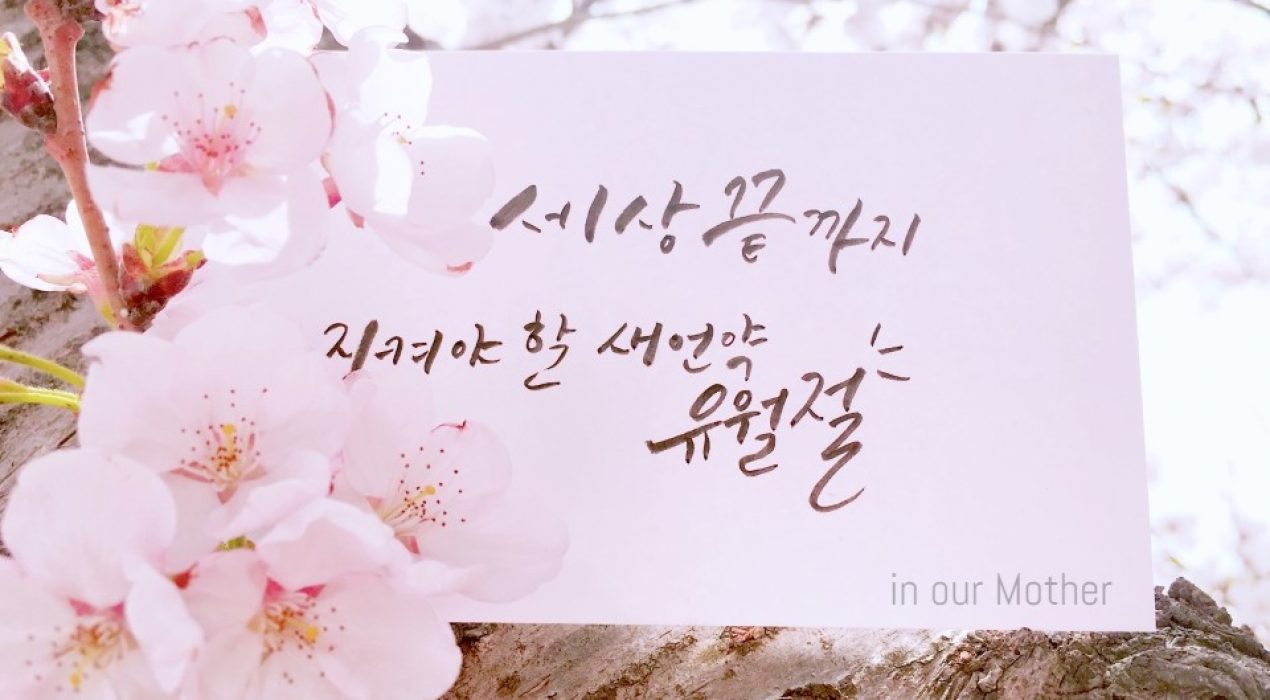 세상 끝까지
지켜야 할 새언약
유월절
in our Mother